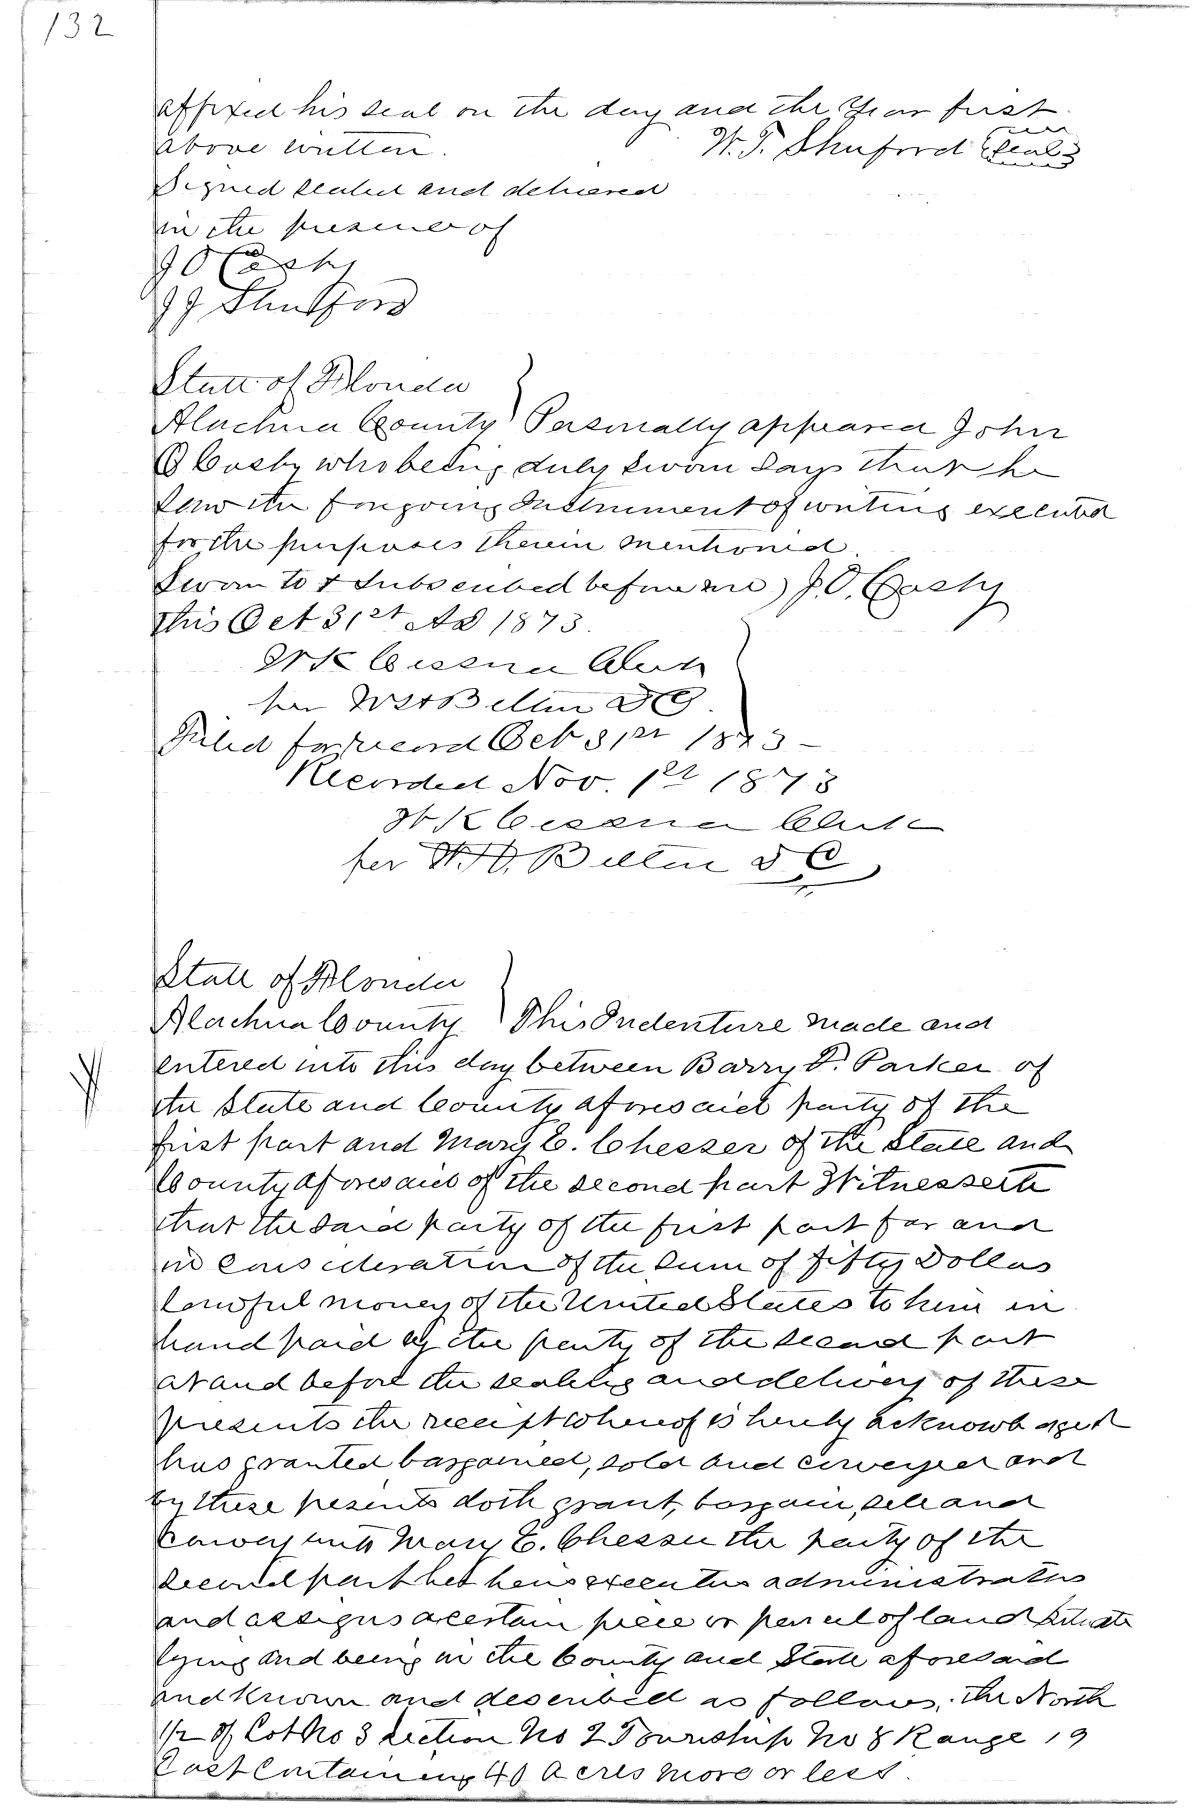 132
affixed his seal on the day and the Year first
above written. W. T. Shuford (Seal)
Signed sealed and delivered
in the presence of
J O Cosby
J J Shufford
State of Florida
Alachua County } Personally appeared John
O Cosby who being duly sworn says that he
saw the foregoing Instrument of writing executed
for the purposes therein mentioned.
Sworn to & subscribed before me } J. O. Cosby
this Oct 31st AD 1873.
W K Cessna Clerk
per W H Belton D C.
Filed for record Oct 31st 1873 –
Recorded Nov. 1st 1873
W K Cessna Clerk
per W. H. Belton D C
State of Florida
Alachua County } This Indenture made and
entered into this day between Barry F. Parker of
the State and County aforesaid party of the
first part and Mary E. Chesser of the State and
County aforesaid of the second part Witnesseth
that the said party of the first part for and
in consideration of the sum of fifty Dollars
lawful money of the United States to him in
hand paid by the party of the second part
at and before the sealing and delivery of these
presents the receipt whereof is hereby acknowledged
has granted bargained, sold and conveyed and
by these presents doth grant, bargain, sell and
convey unto Mary E. Chesser the party of the
second part her heirs executors administrators
and assigns a certain piece or parcel of land situate
lying and being in the County and State aforesaid
and known and described as follows. The North
1/2 of Lot No 3 Section No 2 Township No 8 Range 19
East Containing 40 acres more or less.